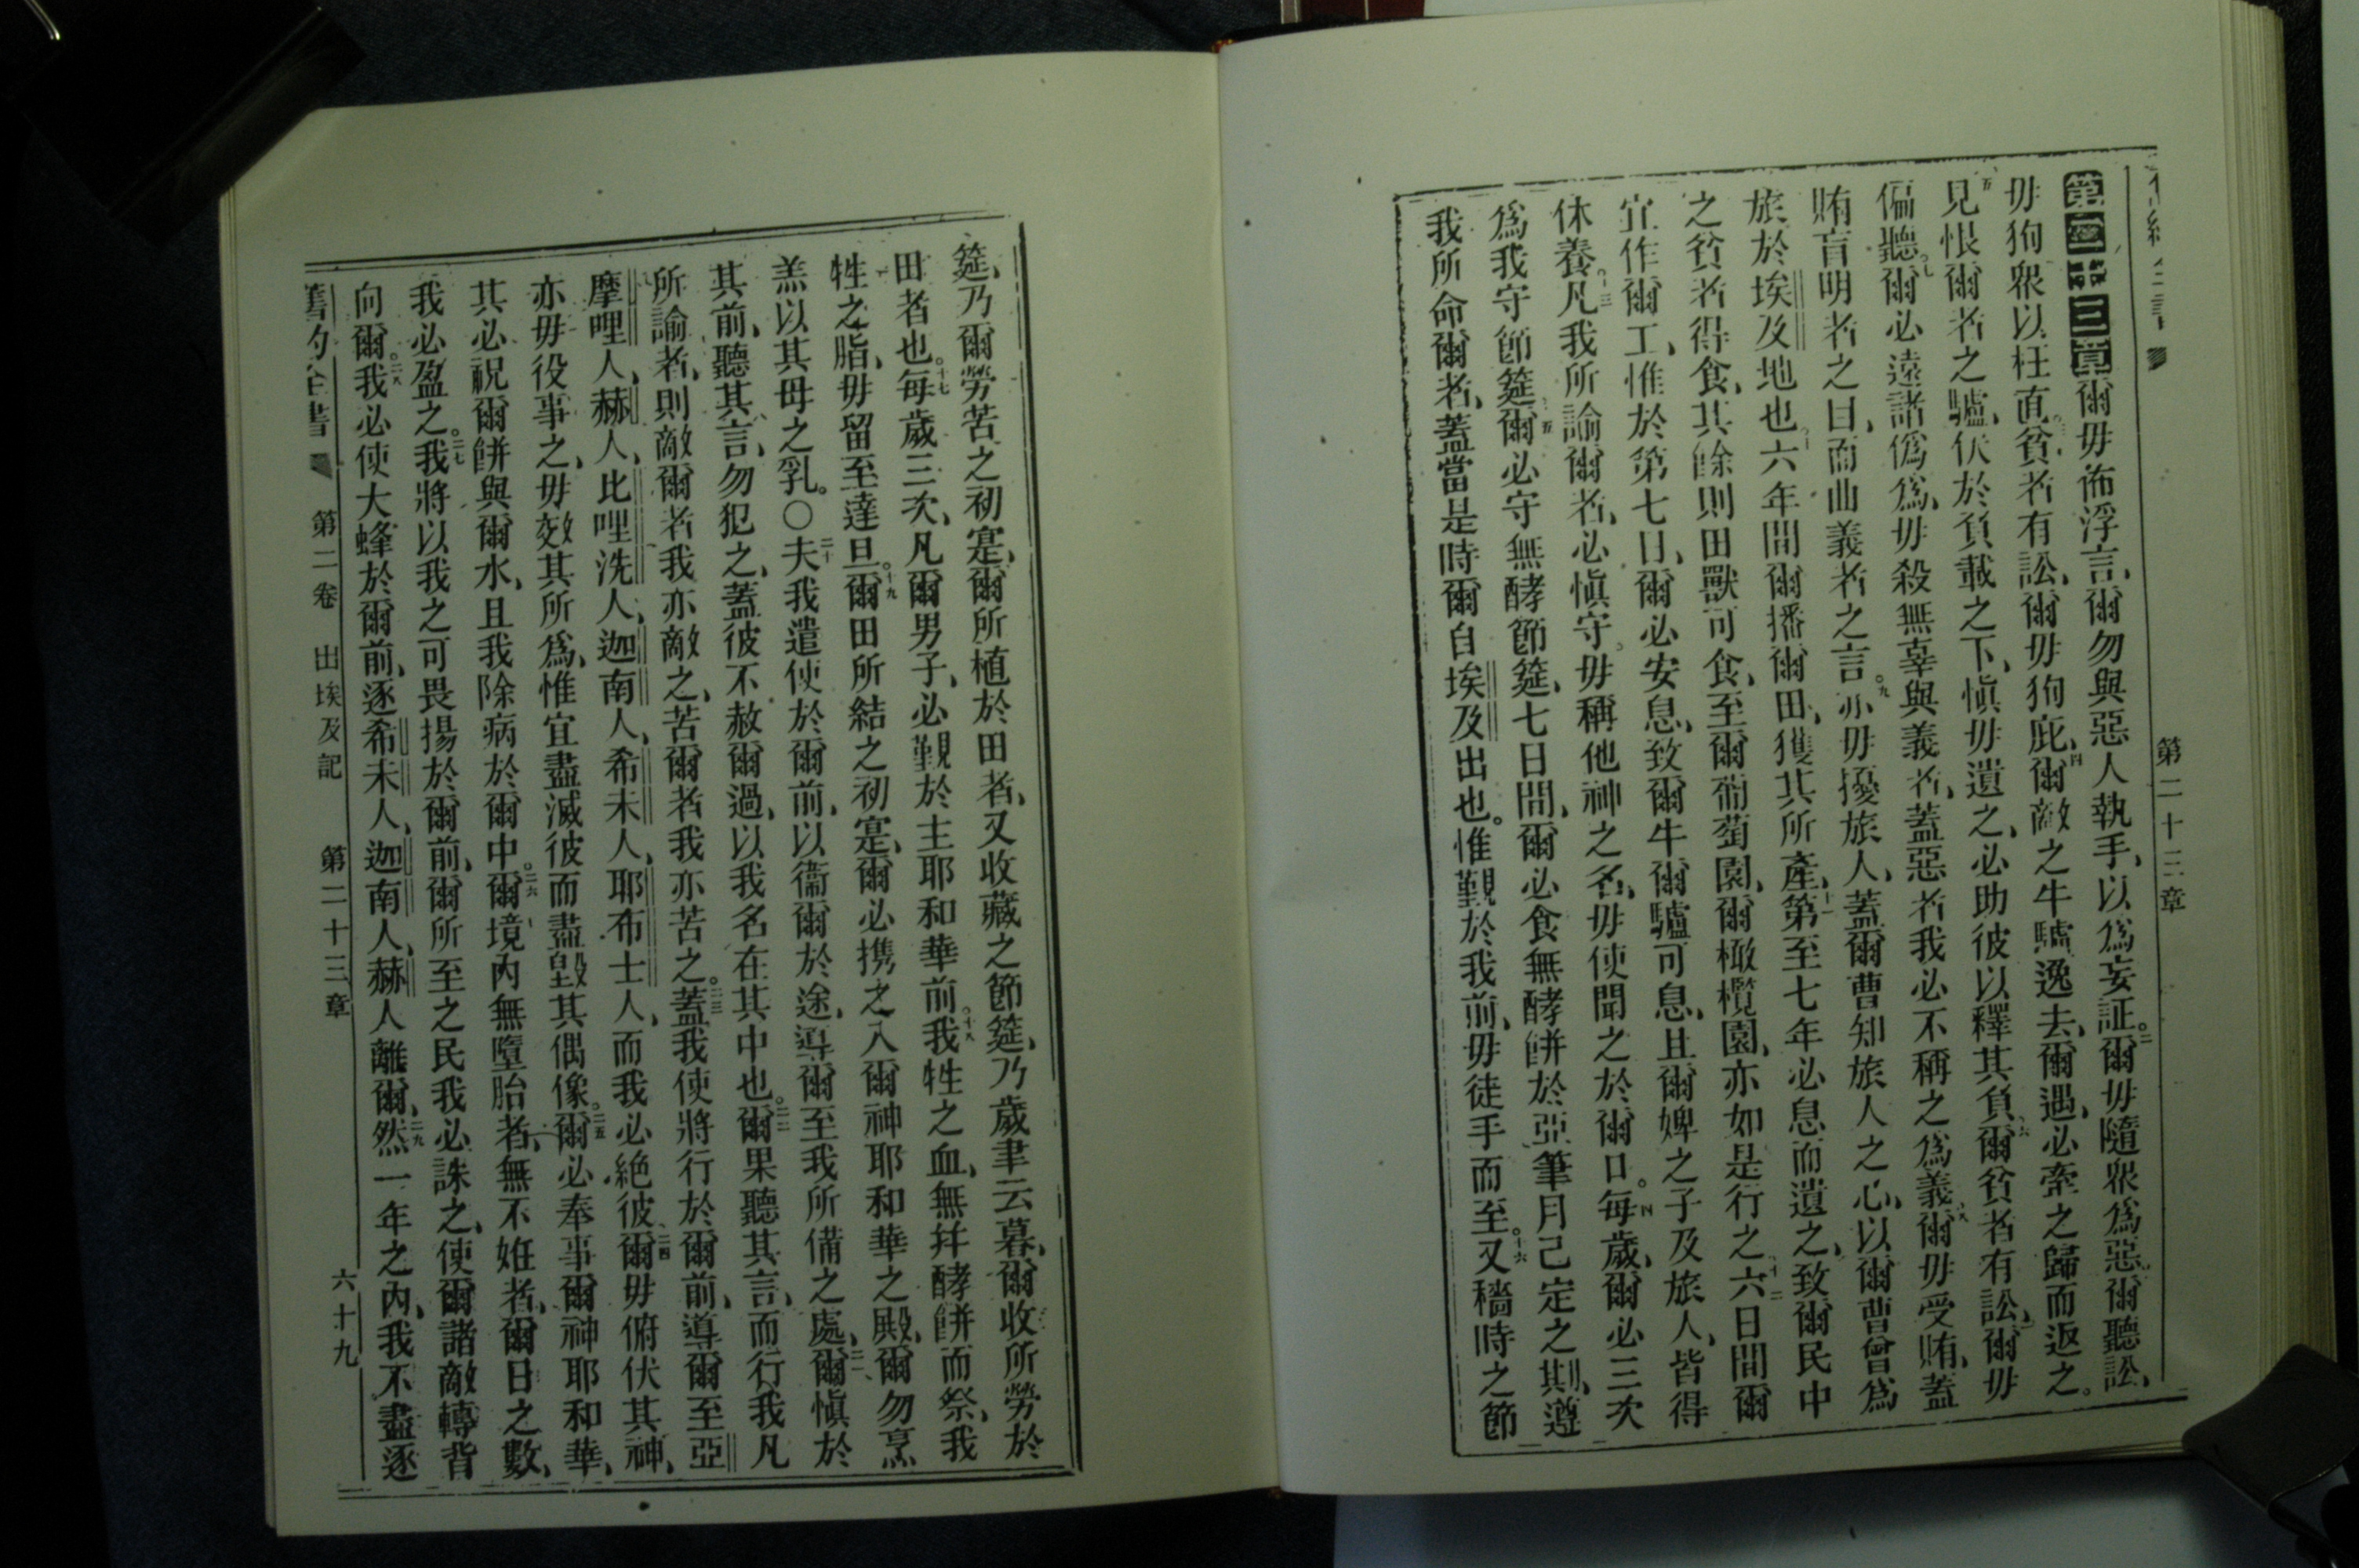 第二十三章
第二十三章爾毋佈浮言、爾勿與惡人執手、以爲妄証。二爾毋隨眾爲惡、爾聽訟、
毋狥眾以枉直。貧者有訟、爾毋狥庇。四爾敵之牛驢逸去、爾遇、必牽之歸而返之。
五見恨爾者之驢、伏於負載之下、愼毋遺之、必助彼以釋其負。六爾貧者有訟、爾毋
偏聽。七爾必遠諸僞爲、毋殺無辜與義者、蓋惡者我必不稱之爲義。八爾毋受賄、蓋
賄盲明者之目、而曲義者之言。九亦毋擾旅人、蓋爾曹知旅人之心、以爾曹曾爲
旅於埃及地也。十六年間爾播爾田、獲其所產、十一第至七年必息而遺之、致爾民中
之貧者得食、其餘則田獸可食、至爾葡萄園、爾橄欖園、亦如是行之。十二六日間爾
宜作爾工、惟於第七日、爾必安息、致爾牛爾驢可息、且爾婢之子及旅人、皆得
休養。十三凡我所諭爾者、必愼守。毋稱他神之名、毋使聞之於爾口。十四每歲、爾必三次
爲我守節筵。十五爾必守無酵節筵、七日間、爾必食無酵餅於亞筆月已定之期、遵
我所命爾者、蓋當是時爾自埃及出也。惟覲於我前、毋徒手而至。十六又穡時之節
筵、乃爾勞苦之初寔、爾所植於田者、又收藏之節筵、乃歲聿云暮、爾收所勞於
田者也。十七每歲三次、凡爾男子、必覲於主耶和華前。十八我牲之血、無幷酵餅而祭、我
牲之脂、毋留至達旦。十九爾田所結之初寔、爾必携之入爾神耶和華之殿、爾勿烹
羔以其母之乳。〇二十夫我遣使於爾前、以衞爾於途、導爾至我所備之處。二一爾愼於
其前、聽其言、勿犯之、蓋彼不赦爾過、以我名在其中也。二二爾果聽其言、而行我凡
所諭者、則敵爾者我亦敵之、苦爾者我亦苦之。二三蓋我使將行於爾前、導爾至亞
摩哩人、赫人、比哩洗人、迦南人、希未人、耶布士人、而我必絕彼。二四爾毋俯伏其神、
亦毋役事之、毋效其所爲、惟宜盡滅彼而盡毀其偶像。二五爾必奉事爾神耶和華、
其必祝爾餅與爾水、且我除病於爾中。二六爾境內無墮胎者、無不姙者、爾日之數、
我必盈之。二七我將以我之可畏揚於爾前、爾所至之民我必誅之、使爾諸敵轉背
向爾。二八我必使大蜂於爾前、逐希未人、迦南人、赫人離爾、二九然一年之內、我不盡逐
舊約全書 第二卷 出埃及記 第二十三章 六十九